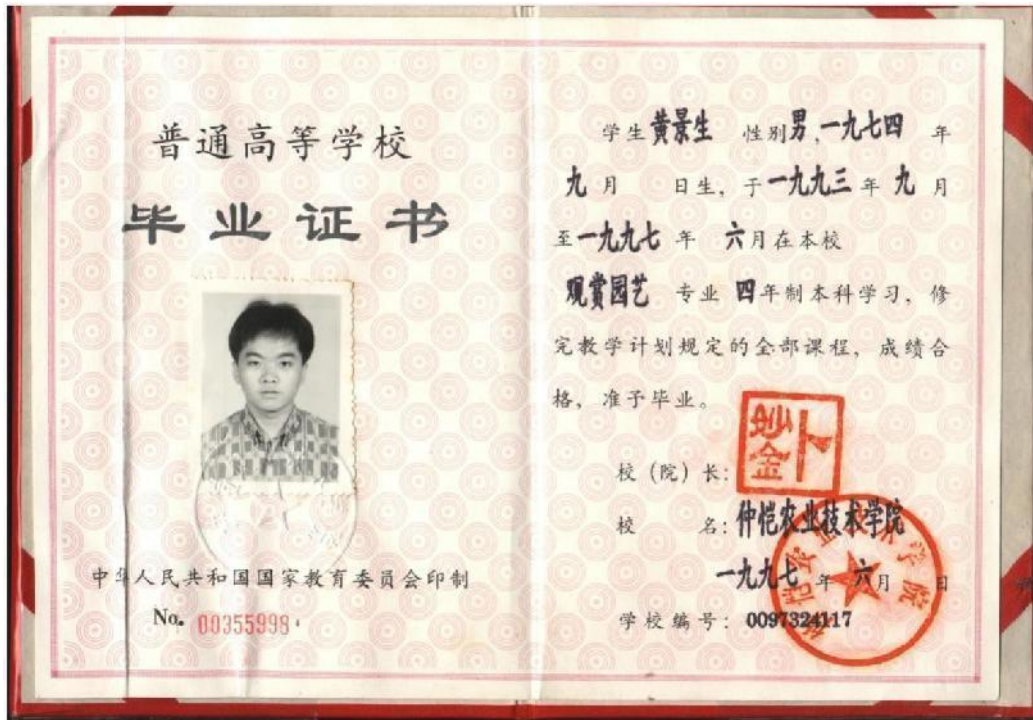 普通高等学校
毕业证书
中华人民共和国国家教育委员会印制
No. 00355998
学生黄景生 性别男,一九七四 年
九月 日生,于一九九三年九月
至一九九七年 六月在本校
观赏园艺 专业 四年制本科学习,修
完教学计划规定的全部课程,成绩合
格,准予毕业。
校(院)长:
校 名:仲恺农业技术学院
一九九七年 六月 日
学校编号:0097324117
仲恺农业技术学院